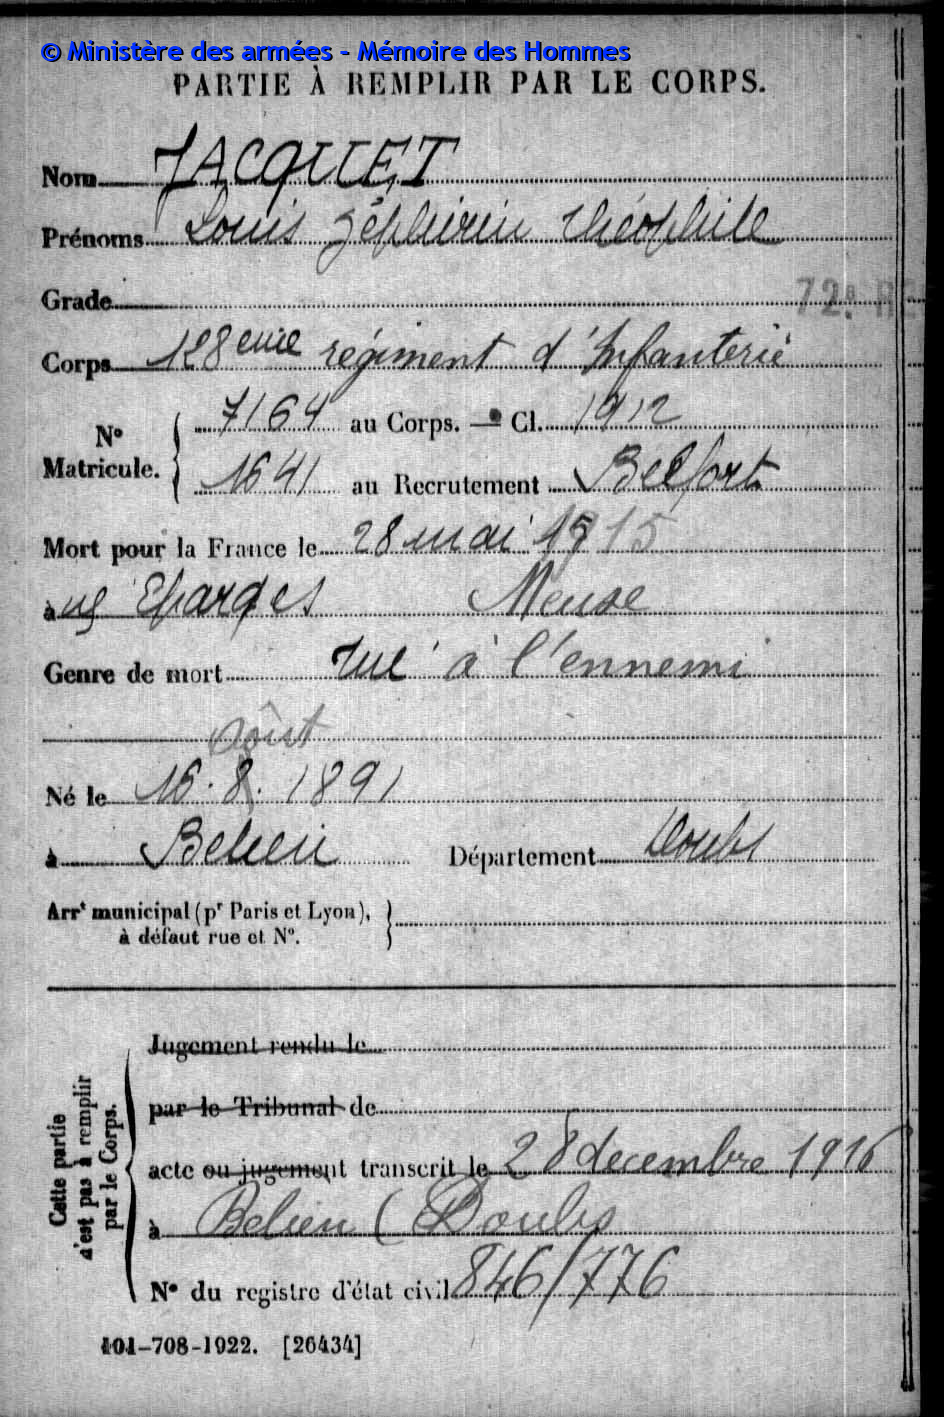 © Ministère des armées - Mémoire des Hommes
PARTIE À REMPLIR PAR LE CORPS.
Nom JACQUET
Prénoms Louis Zéphirin Théophile
Grade
72e RE
Corps 128eme régiment d'Infanterie
N° Matricule. { 7164 au Corps. — Cl. 1912
1641 au Recrutement Belfort
Mort pour la France le 28 mai 1915
à Eparges Meuse
Genre de mort Tué à l'ennemi
août
Né le 16.8.1891
à Belieu Département Doubs
Arrt municipal (pr Paris et Lyon), à défaut rue et N°. }
Cette partie n'est pas à remplir par le Corps. {
Jugement rendu le
par le Tribunal de
acte ou jugement transcrit le 28 decembre 1916
à Belieu (Doubs
N° du registre d'état civil 846/776
101-708-1922. [26434]